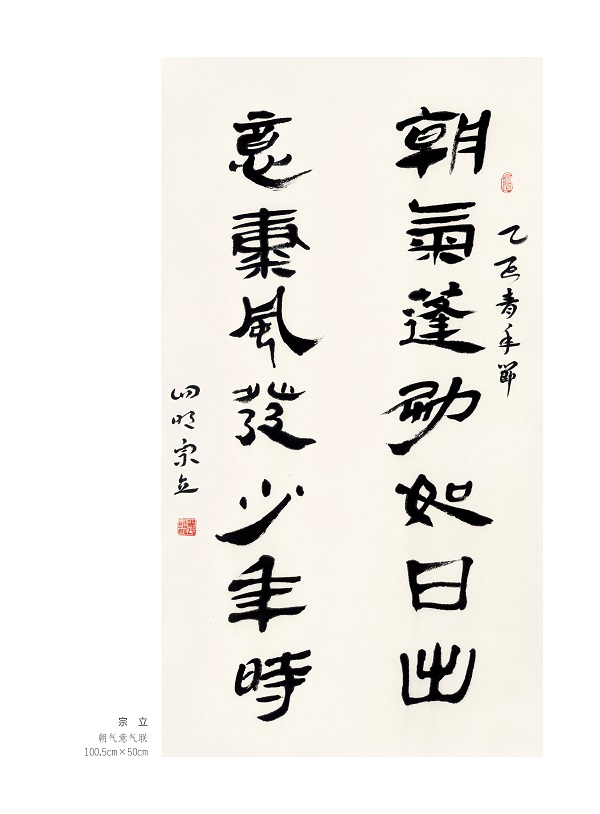 朝氣蓬勃如日出
乙酉青年節
意氣風發少年時
四明宗立
宗 立
朝气意气联
100.5cm×50cm